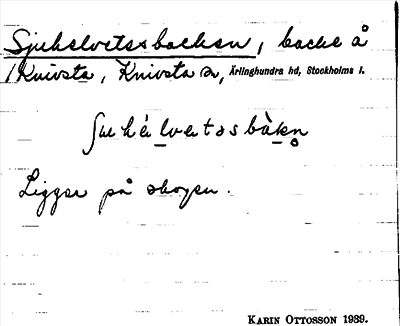 Sjuhelvetesbacken, backe å
Knivsta, Knivsta sn, Ärlinghundra hd, Stockholms l.
Ligger på skogen.
KARIN OTTOSSON 1939.